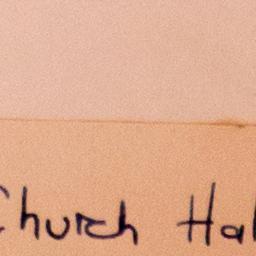 Church Hal